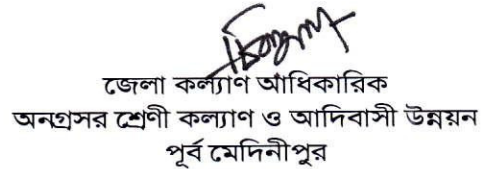 জেলা কল্যাণ আধিকারিক
অনগ্রসর শ্রেণী কল্যাণ ও আদিবাসী উন্নয়ন
পূর্ব মেদিনীপুর